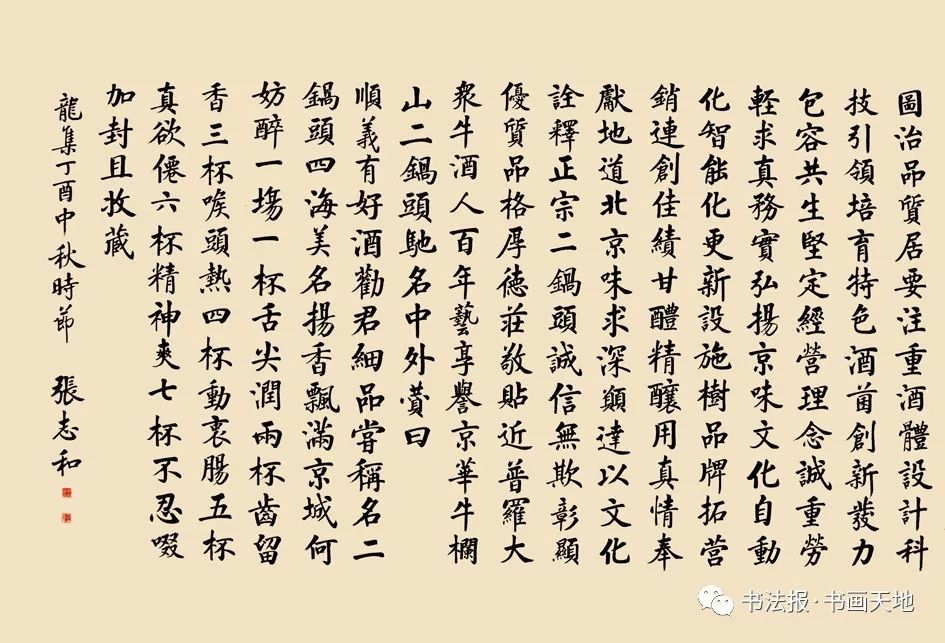 圖治品質居要注重酒體設計科
技引領培育特色酒創新發力
包容共生堅定經營理念誠重勞
輕求真務實弘揚京味文化自動
化智能化更新設施樹品牌拓營
銷連創佳績甘醴精釀用真情奉
獻地道北京味求深顛達以文化
詮釋正宗二鍋頭誠信無欺彰顯
優質品格厚德莊敬貼近普羅大
衆牛酒人百年藝享譽京華牛欄
山二鍋頭馳名中外贊曰
順義有好酒勸君細品嘗稱名二
鍋頭四海美名揚香飄滿京城何
妨醉一塲一杯舌尖潤兩杯齒留
香三杯喉頭熱四杯動衷腸五杯
真欲僊六杯精神爽七杯不忍啜
加封且收藏
龍集丁酉中秋時節 張志和
书法报·书画天地